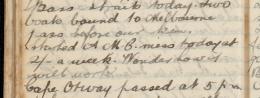 Bass strait today. two
boats bound to Melbourne
pass before our
started A M C. mess today at
2/- a week. Wonder how it
will work.
Cape Otway passed at 5 p.m.